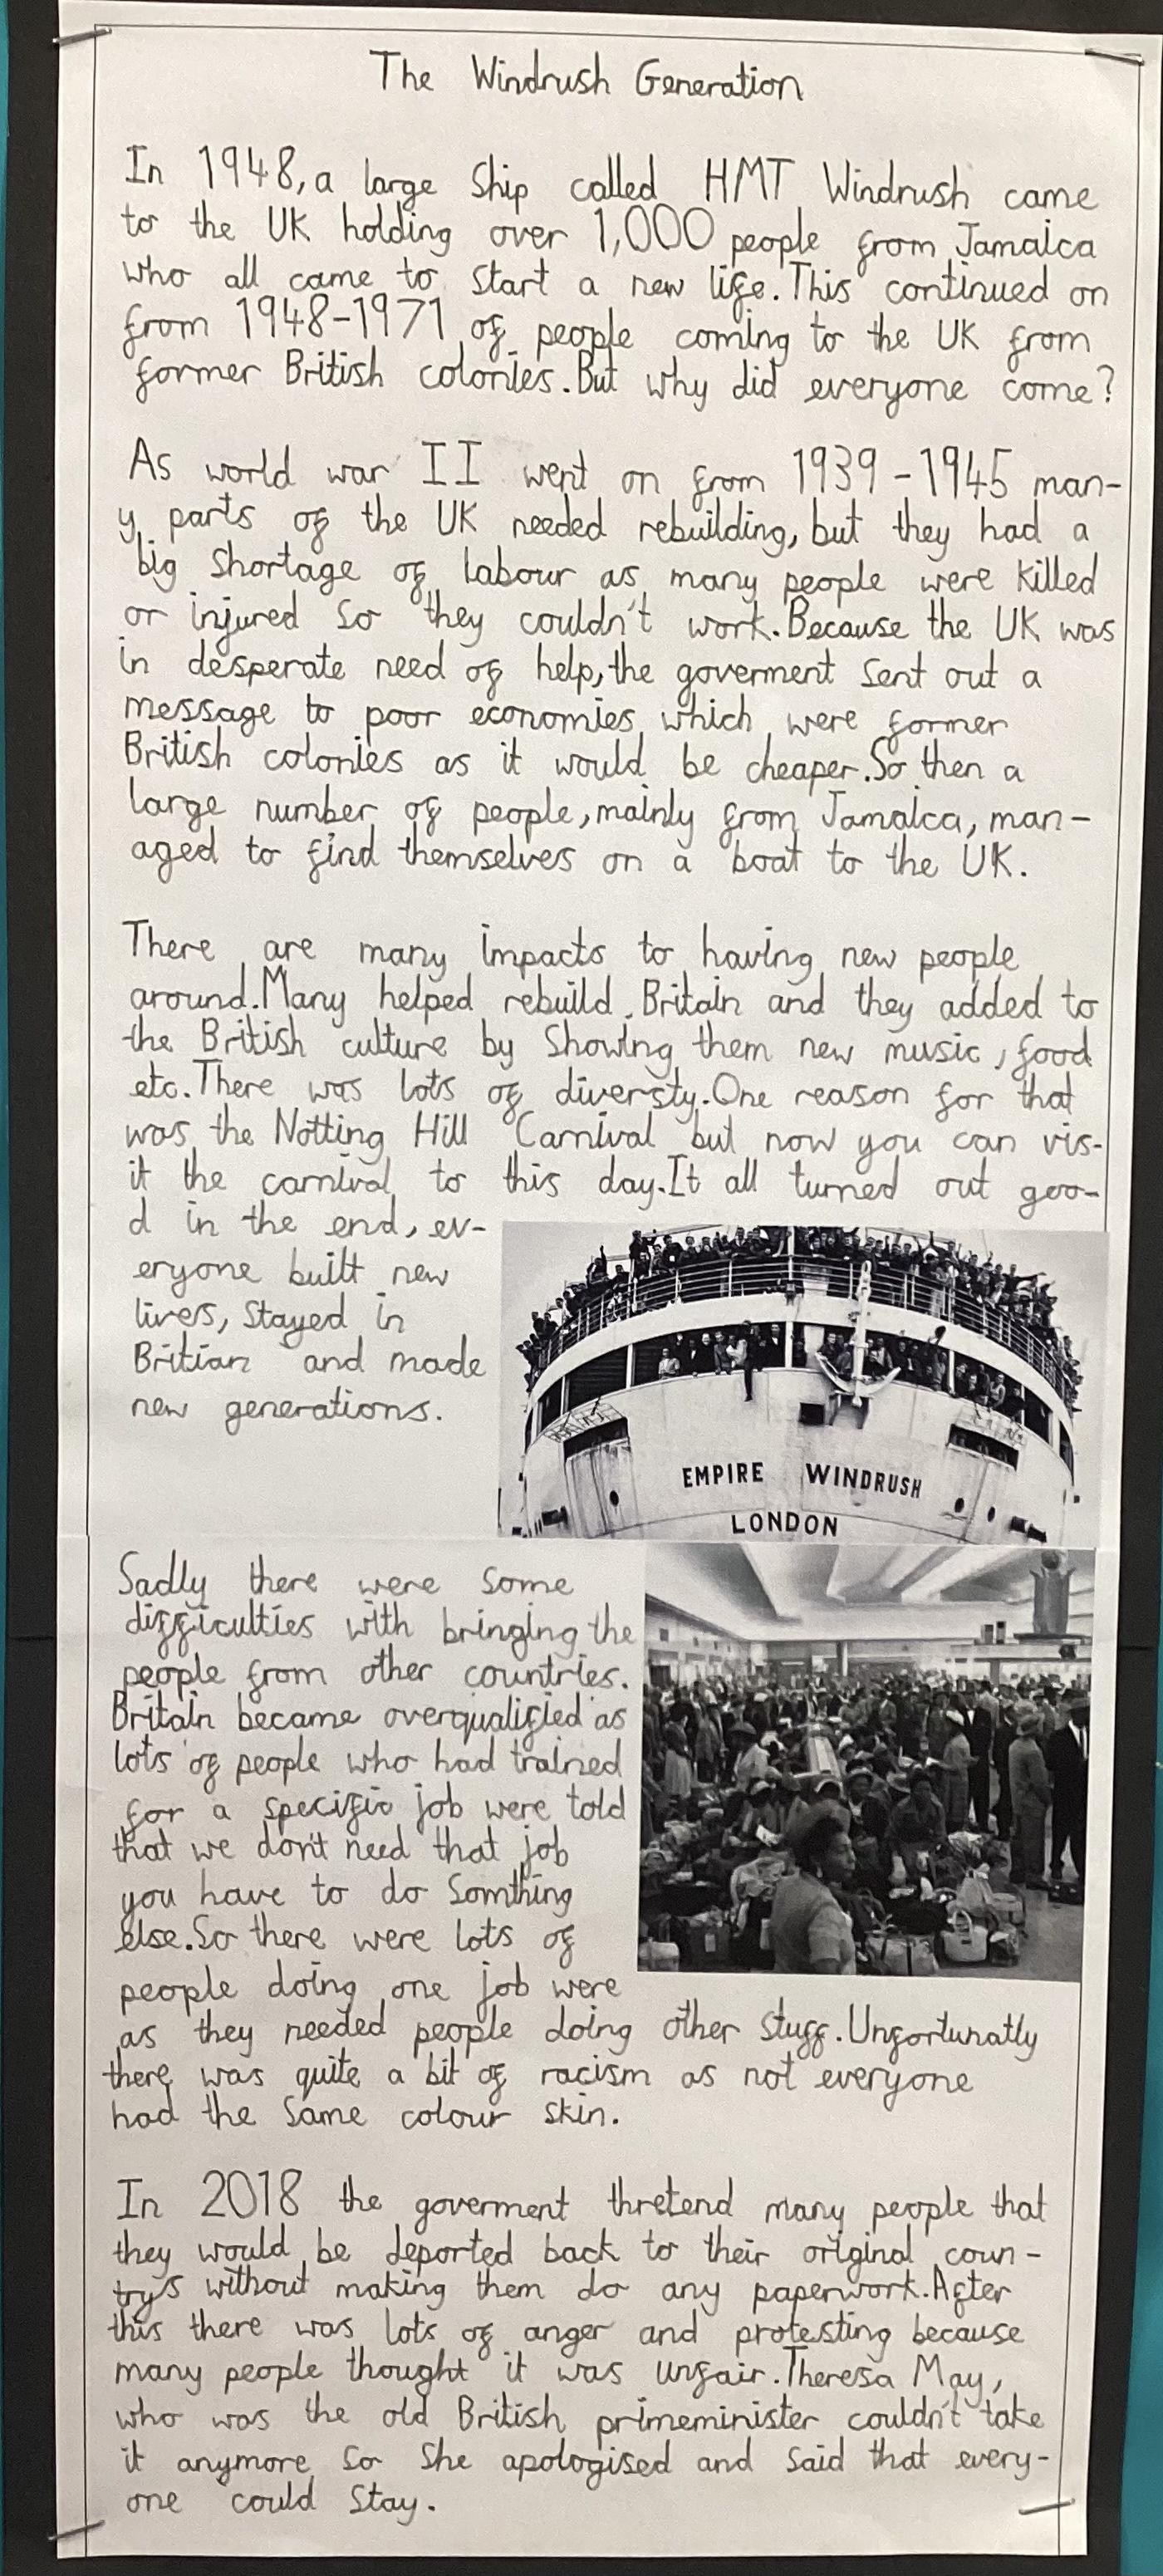 The Windrush Generation
In 1948, a large ship called HMT Windrush came
to the UK holding over 1,000 people from Jamaica
who all came to start a new life. This continued on
from 1948-1971 of people coming to the UK from
former British colonies. But why did everyone come?
As world war II went on from 1939-1945 man-
y parts of the UK needed rebuilding, but they had a
big shortage of labour as many people were killed
or injured so they couldn't work. Because the UK was
in desperate need of help, the goverment sent out a
message to poor economies which were former
British colonies as it would be cheaper. So then a
large number of people, mainly from Jamaica, man-
aged to find themselves on a boat to the UK.
There are many impacts to having new people
around. Many helped rebuild Britain and they added to
the British culture by showing them new music, food
etc. There was lots of diversty. One reason for that
was the Notting Hill Carnival but now you can vis-
it the carnival to this day. It all turned out goo-
d in the end, ev-
eryone built new
lives, stayed in
Britian and made
new generations.
EMPIRE WINDRUSH
LONDON
Sadly there were some
difficulties with bringing the
people from other countries.
Britain became overqualified as
lots of people who had trained
for a specific job were told
that we don't need that job
you have to do somthing
else. So there were lots of
people doing one job were
as they needed people doing other stuff. Unfortunatly
there was quite a bit of racism as not everyone
had the same colour skin.
In 2018 the goverment thretend many people that
they would be deported back to their original coun-
trys without making them do any paperwork. After
this there was lots of anger and protesting because
many people thought it was unfair. Theresa May,
who was the old British primeminister couldn't take
it anymore so she apologised and said that every-
one could stay.